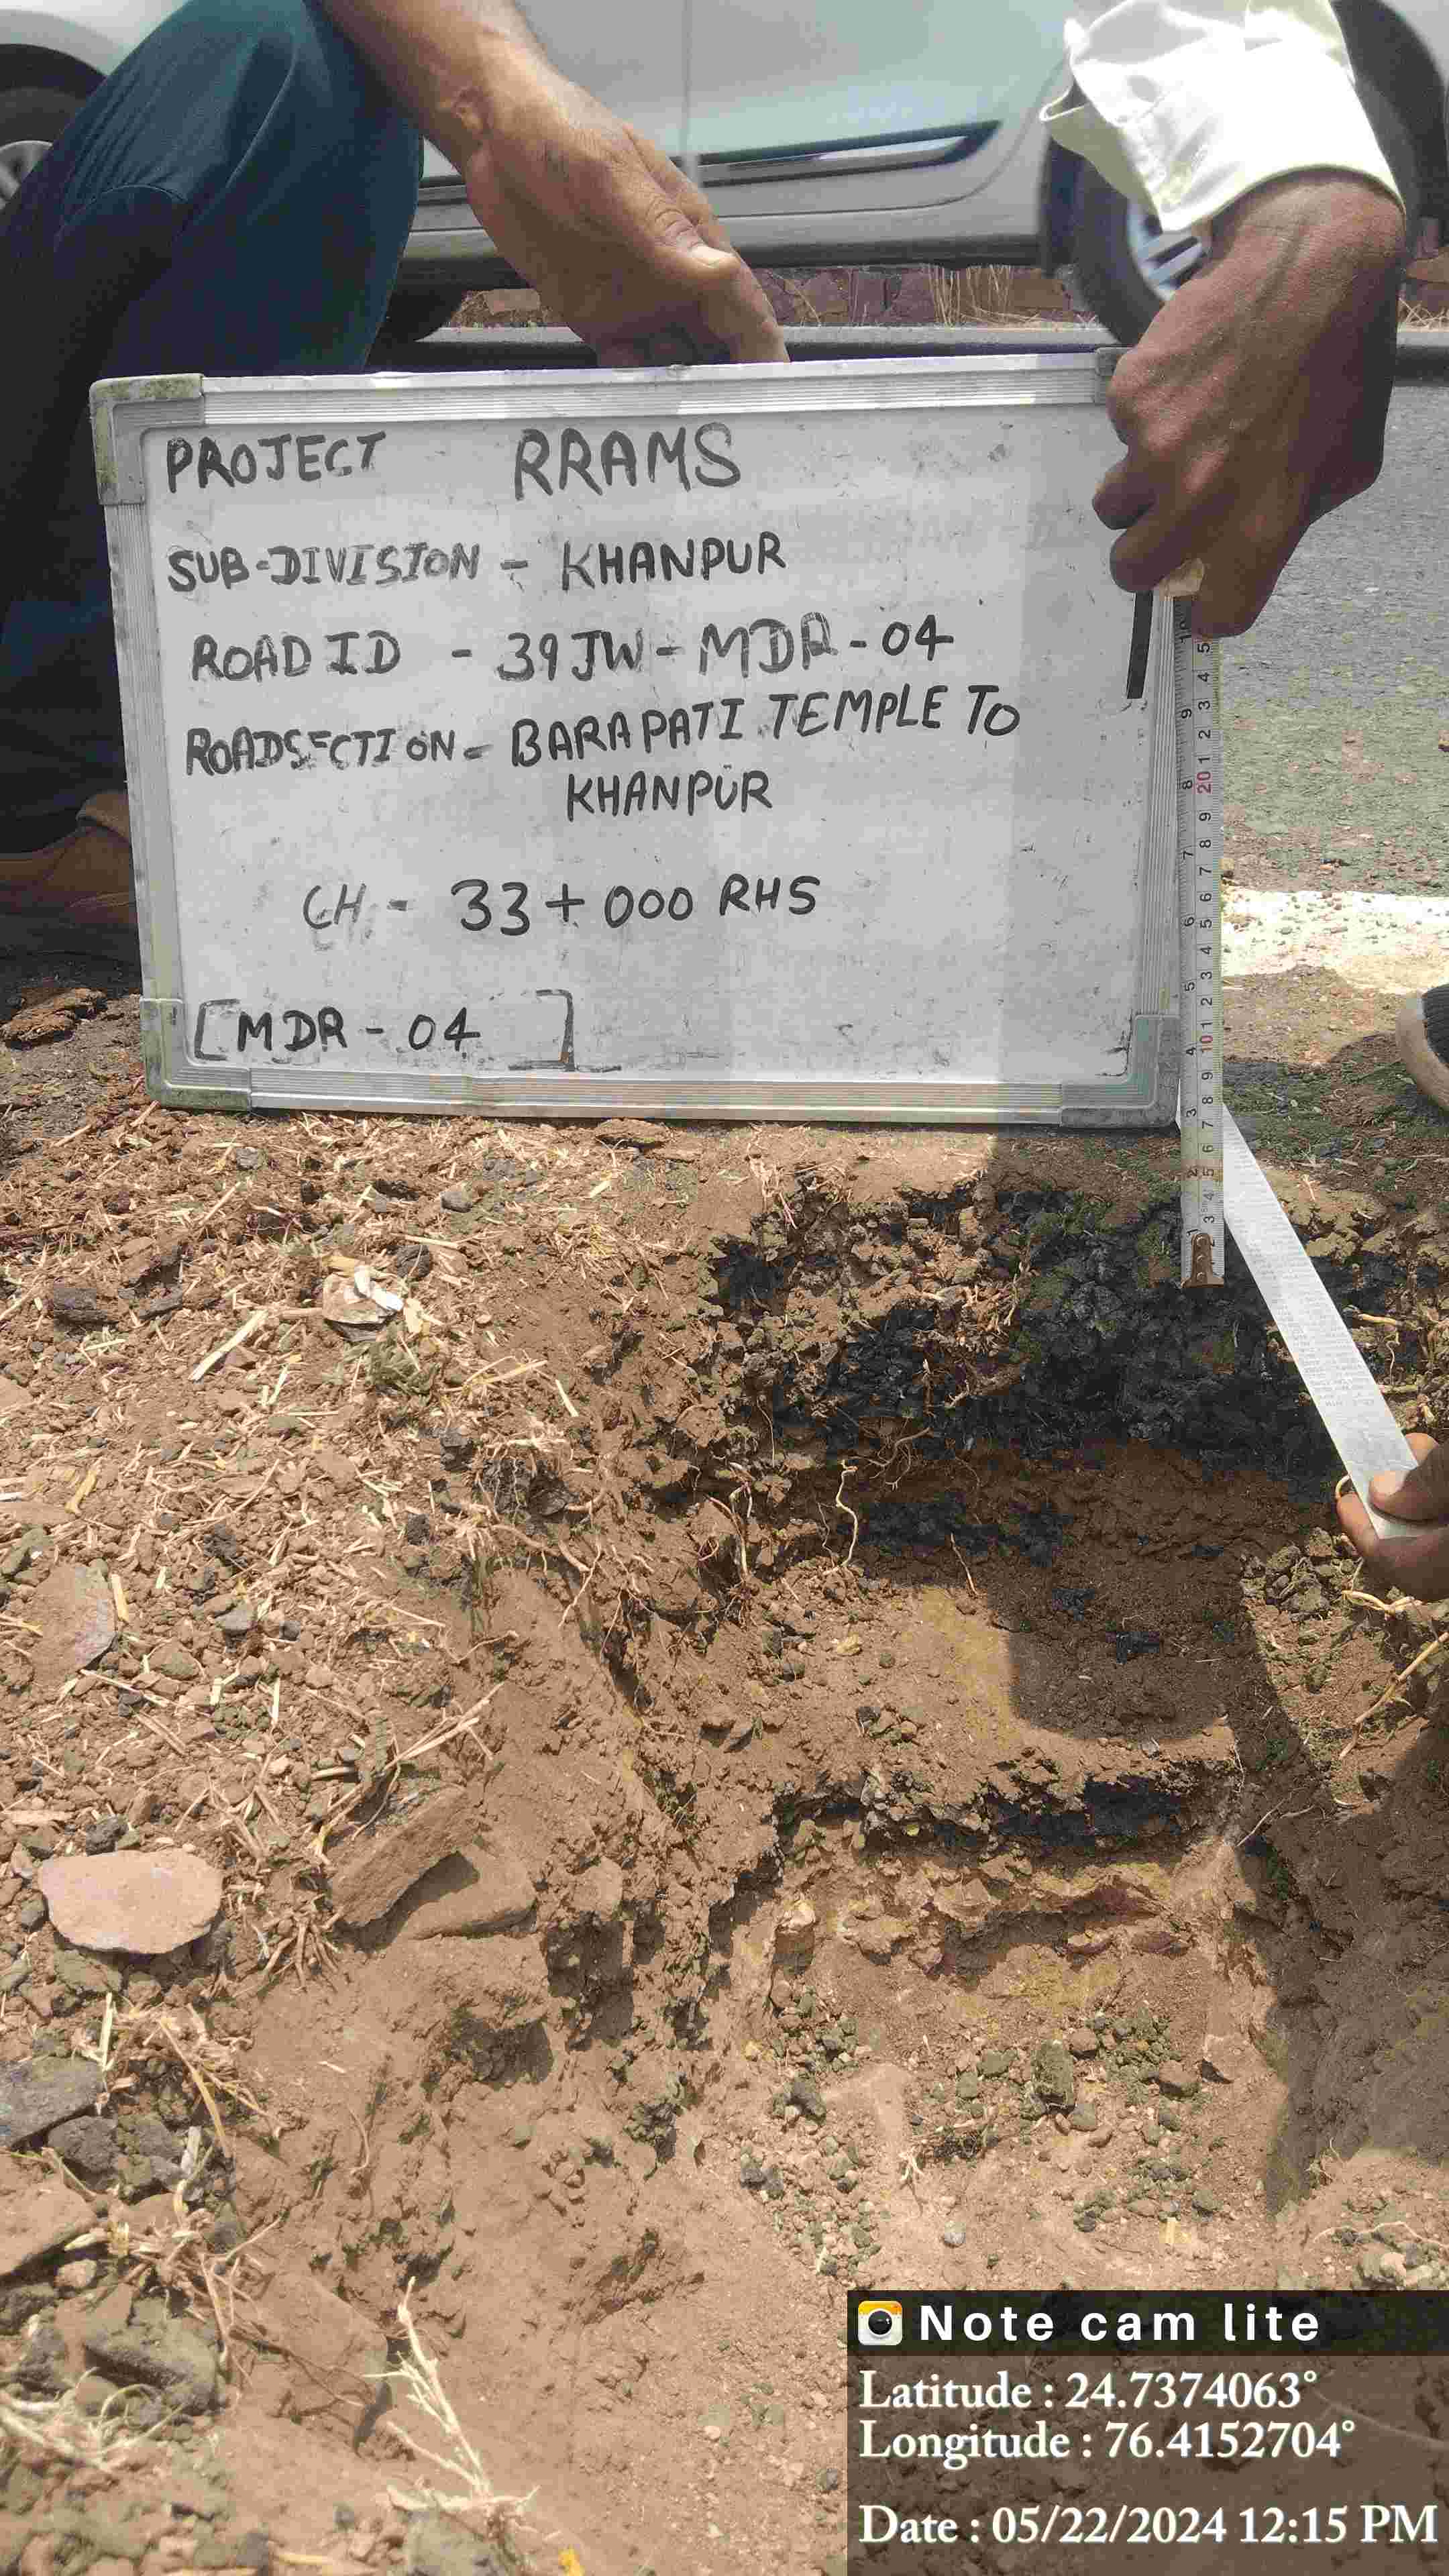 PROJECT RRAMS
SUB-DIVISION - KHANPUR
ROAD ID - 39JW-MDR-04
ROADSECTION - BARAPATI TEMPLE TO
KHANPUR
CH - 33+000 RHS
[MDR-04]
Note cam lite
Latitude : 24.7374063°
Longitude : 76.4152704°
Date : 05/22/2024 12:15 PM